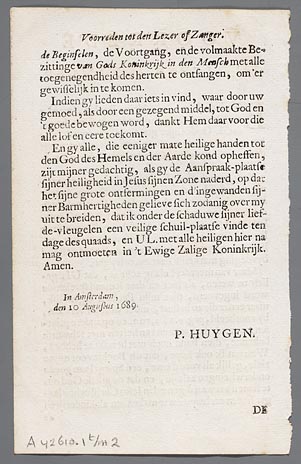 Voorreden tot den Lezer of Zanger.
de Beginselen, de Voortgang, en de volmaakte Be-
zittinge van Gods Koninkrijk in den Mensch met alle
toegenegendheid des herten te ontfangen, om 'er
gewisselijk in te komen.
Indien gy lieden daar iets in vind, waar door uw
gemoed, als door een gezegend middel, tot God en
't goede bewogen word, dankt Hem daar voor die
alle lof en eere toekomt.
En gy alle, die eeniger mate heilige handen tot
den God des Hemels en der Aarde kond opheffen,
zijt mijner gedachtig, als gy de Aanspraak-plaatse
sijner heiligheid in Jesus sijnen Zone naderd, op dat
het sijne grote ontfermingen en d'ingewanden sij-
ner Barmhertigheden gelieve sich zodanig over my
uit te breiden, dat ik onder de schaduwe sijner lief-
de-vleugelen een veilige schuil-plaatse vinde ten
dage des quaads, en U L. met alle heiligen hier na
mag ontmoeten in 't Ewige Zalige Koninkrijk.
Amen.
In Amsterdam,
den 10 Augustus 1689.
P. HUYGEN.
DE